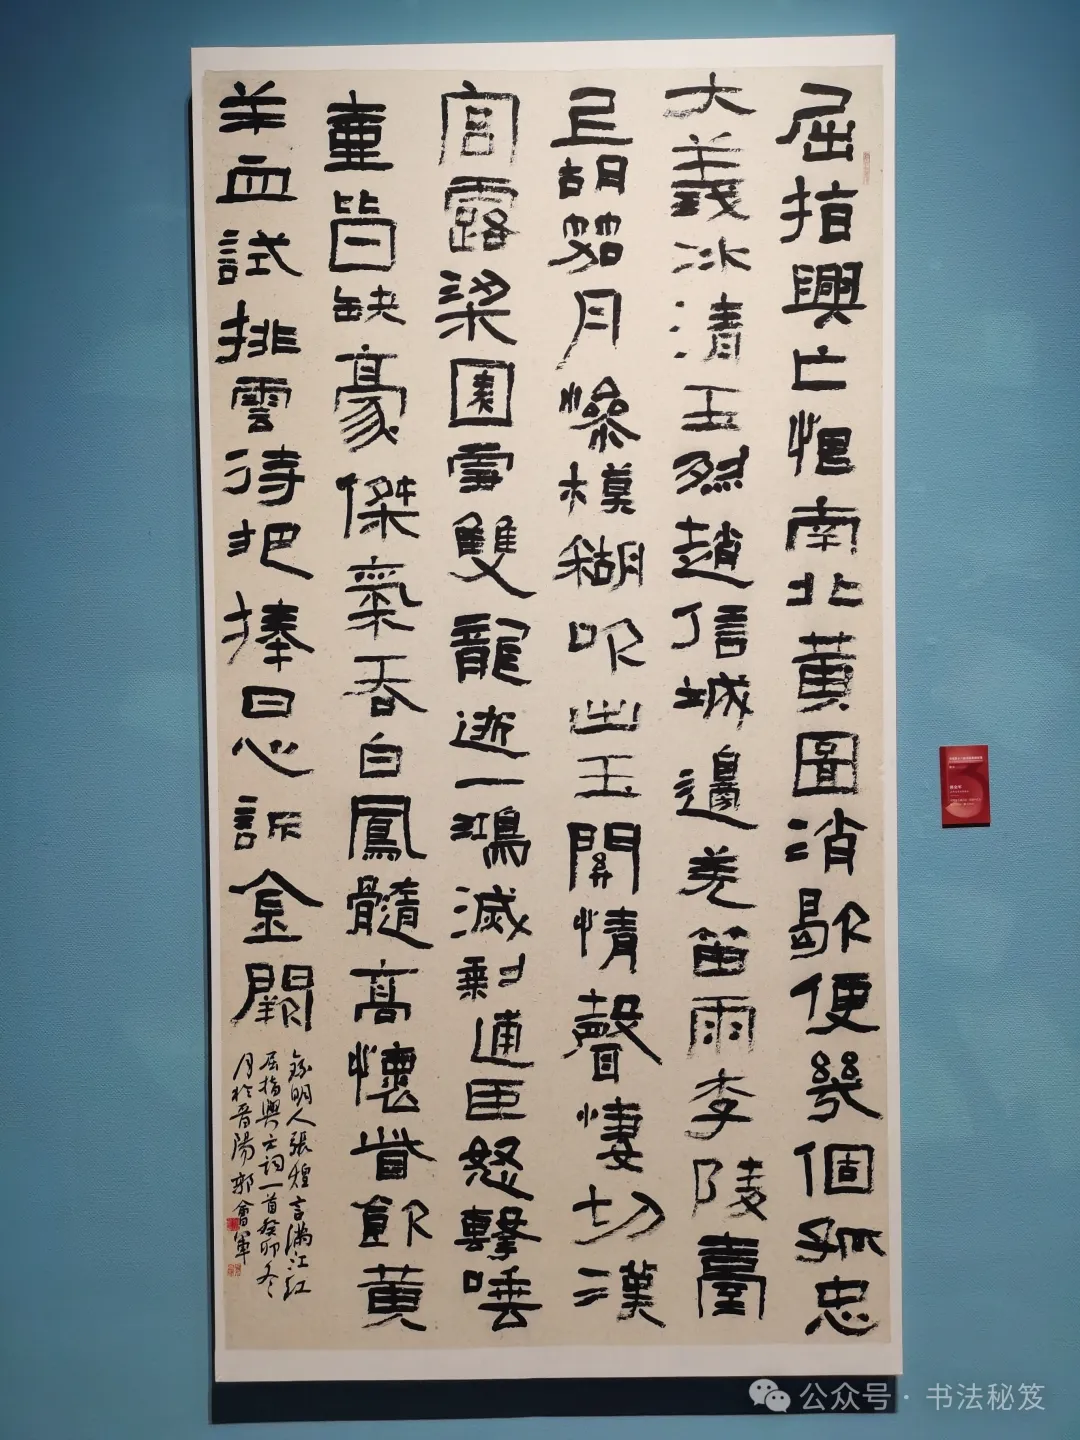 屈指興亡恨南北黃圖消歇便幾個孤忠
大義冰清玉烈趙信城邊羌笛雨李陵臺
上胡笳月慘模糊吹出玉關情聲悽切漢
宮露梁園雪雙龍逝一鴻滅剩逋臣怒擊唾
壺皆缺豪傑氣吞白鳳髓高懷眥飲黃
羊血試排雲待把捧日心訴金闕
錄明人張煌言滿江紅
屈指興亡詞一首癸卯冬
月於晉陽郭會軍
公众号·书法秘笈